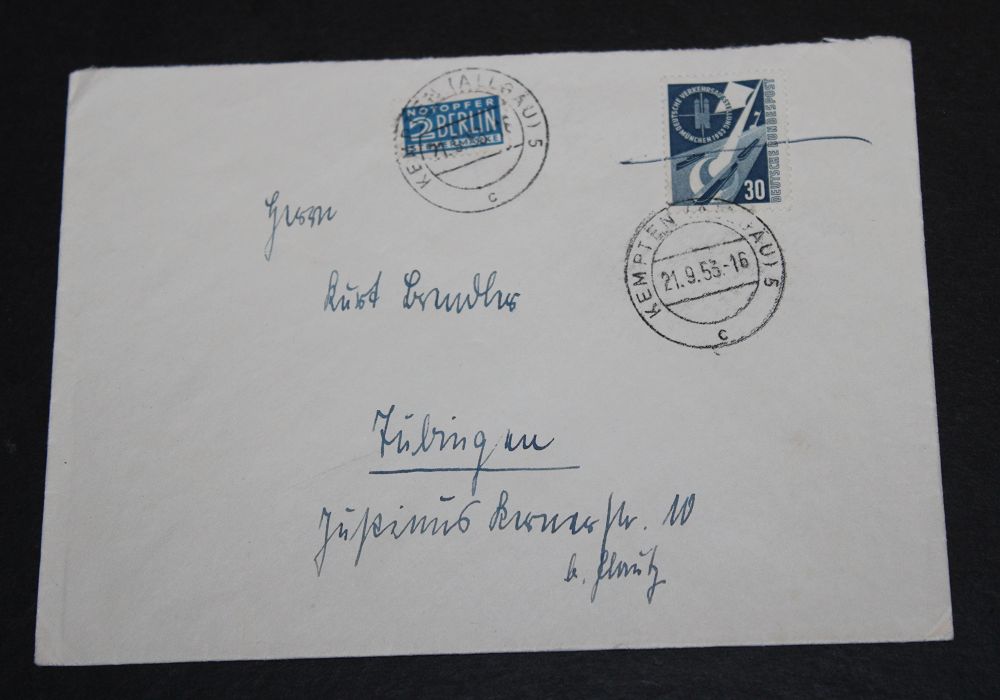 NOTOPFER
2 BERLIN
STEUERMARKE
KEMPTEN (ALLGÄU) 5
21.9.53
c
DEUTSCHE VERKEHRSAUSSTELLUNG
MÜNCHEN 1953
30
DEUTSCHE BUNDESPOST
KEMPTEN (ALLGÄU) 5
21.9.53.-16
c
Herrn
Kurt Brendler
Tübingen
Justinus Kernerstr. 10
b.